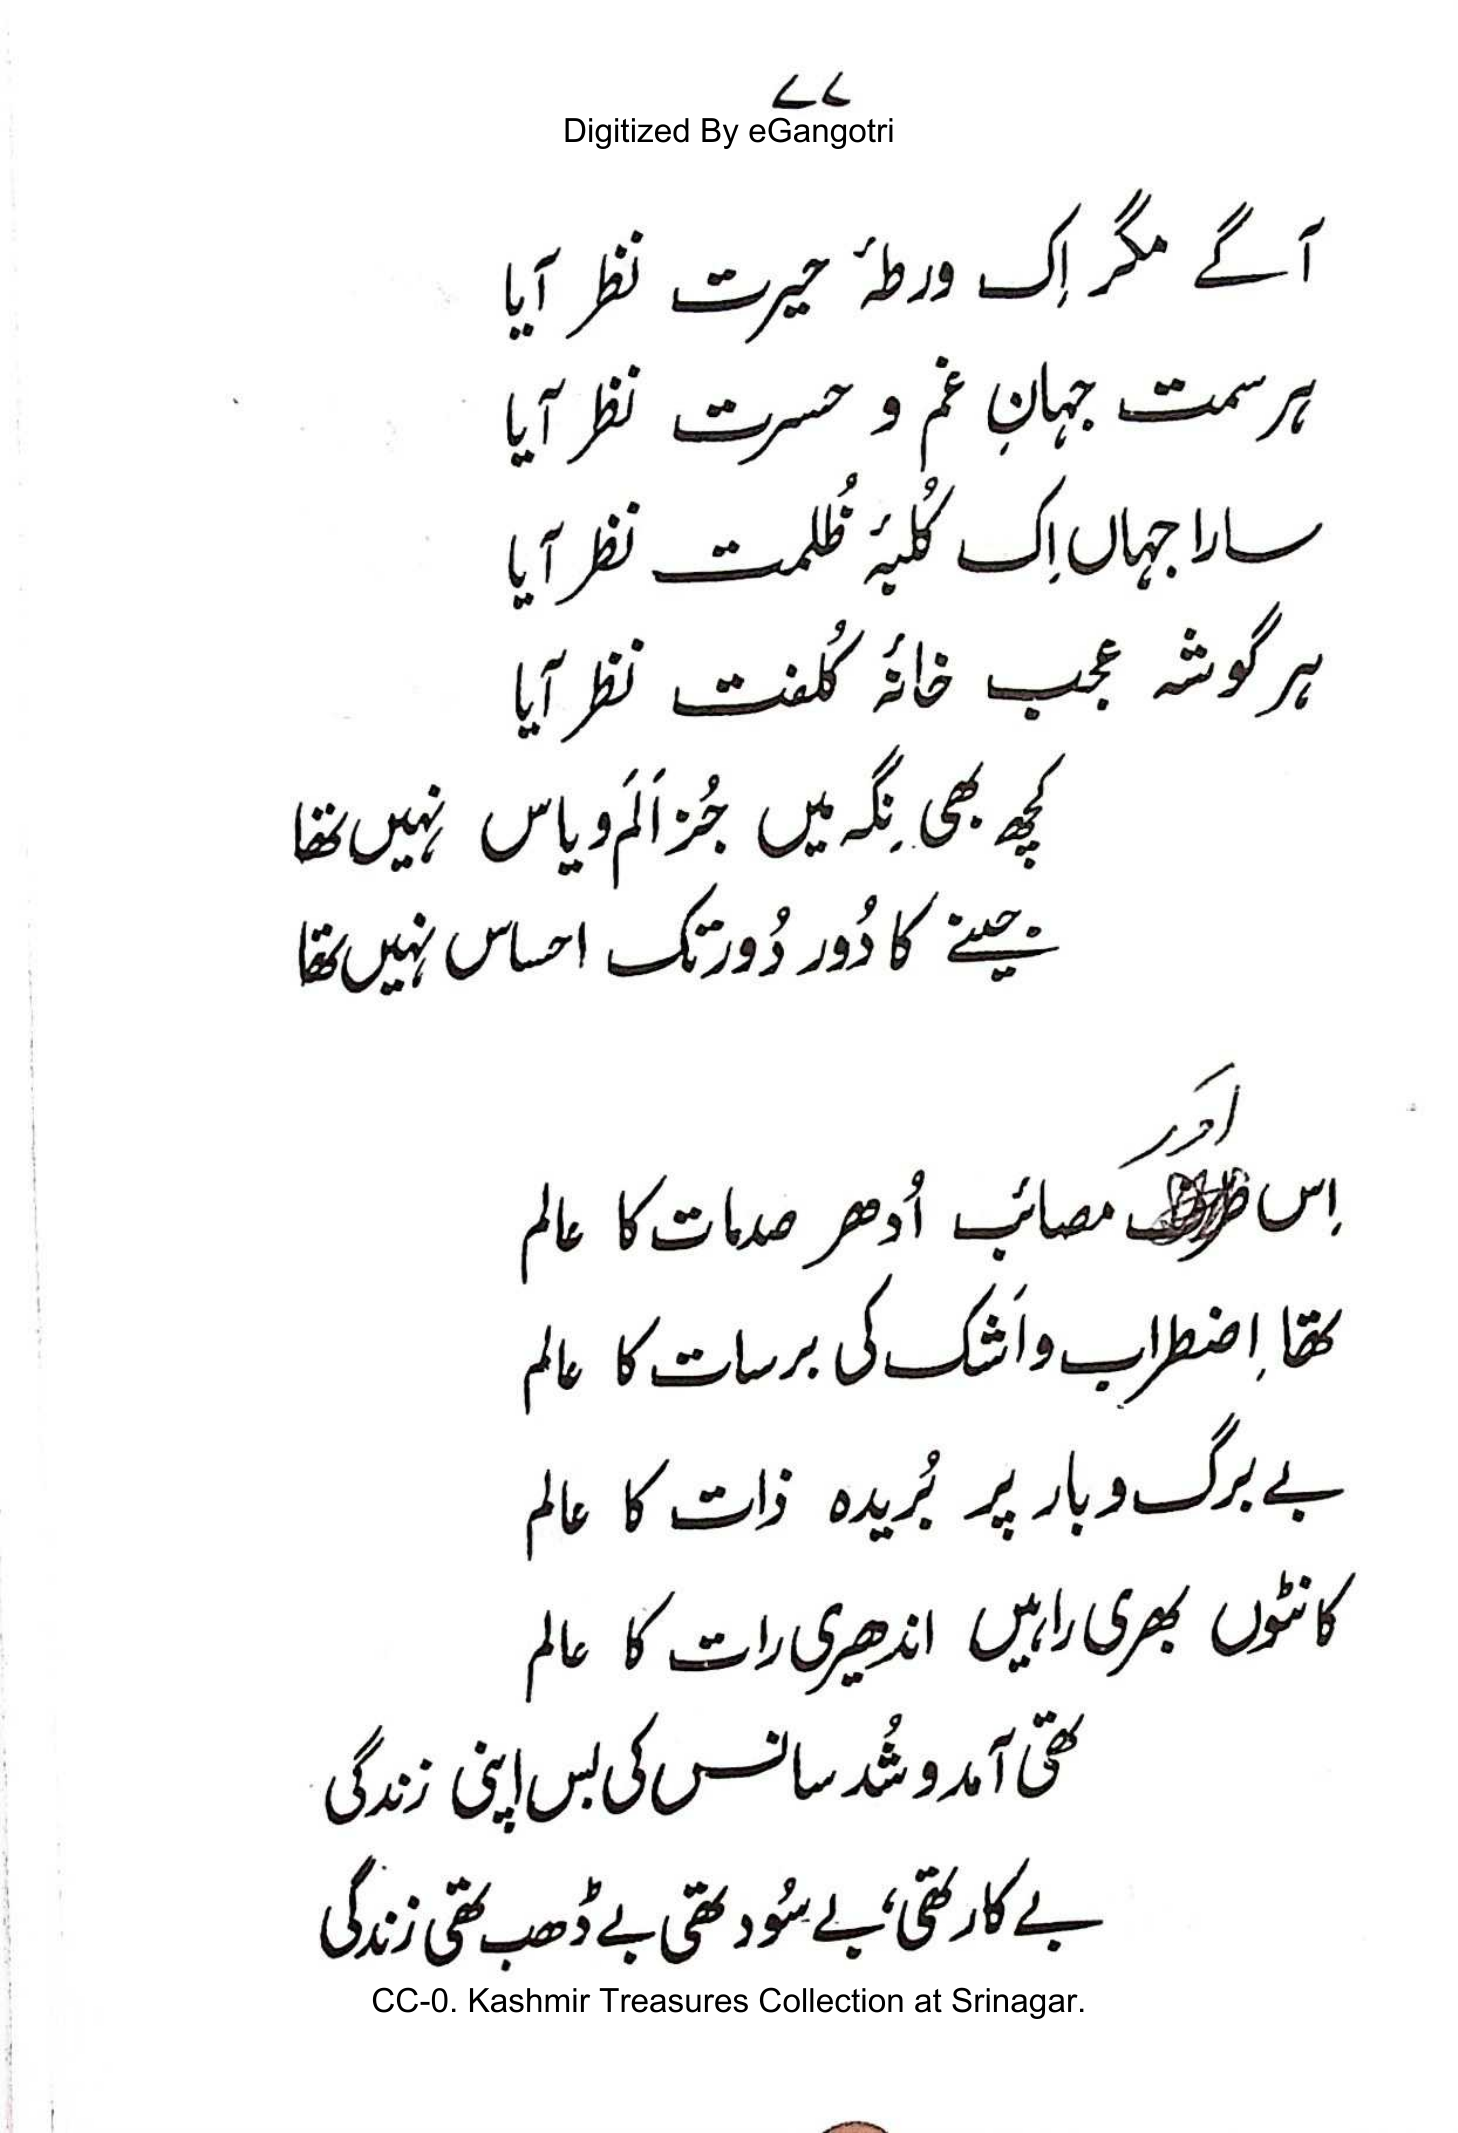 ۷۷
Digitized By eGangotri
آگے مگر اِک ورطۂ حیرت نظر آیا
ہر سمت جہانِ غم و حسرت نظر آیا
سارا جہاں اِک کُلبۂ ظُلمت نظر آیا
ہر گوشہ عجب خانۂ کُلفت نظر آیا
کچھ بھی نِگہ میں جُز اَلَم و یاس نہیں تھا
جینے کا دُور دُور تک احساس نہیں تھا
اور
اِس طرف مصائب اُدھر صدمات کا عالم
تھا اِضطراب و اَشک کی برسات کا عالم
بے برگ و بار پر بُریدہ ذات کا عالم
کانٹوں بھری راہیں اندھیری رات کا عالم
تھی آمد و شُد سانس کی بس اپنی زندگی
بے کار تھی، بے سُود تھی بے ڈھب تھی زندگی
CC-0. Kashmir Treasures Collection at Srinagar.